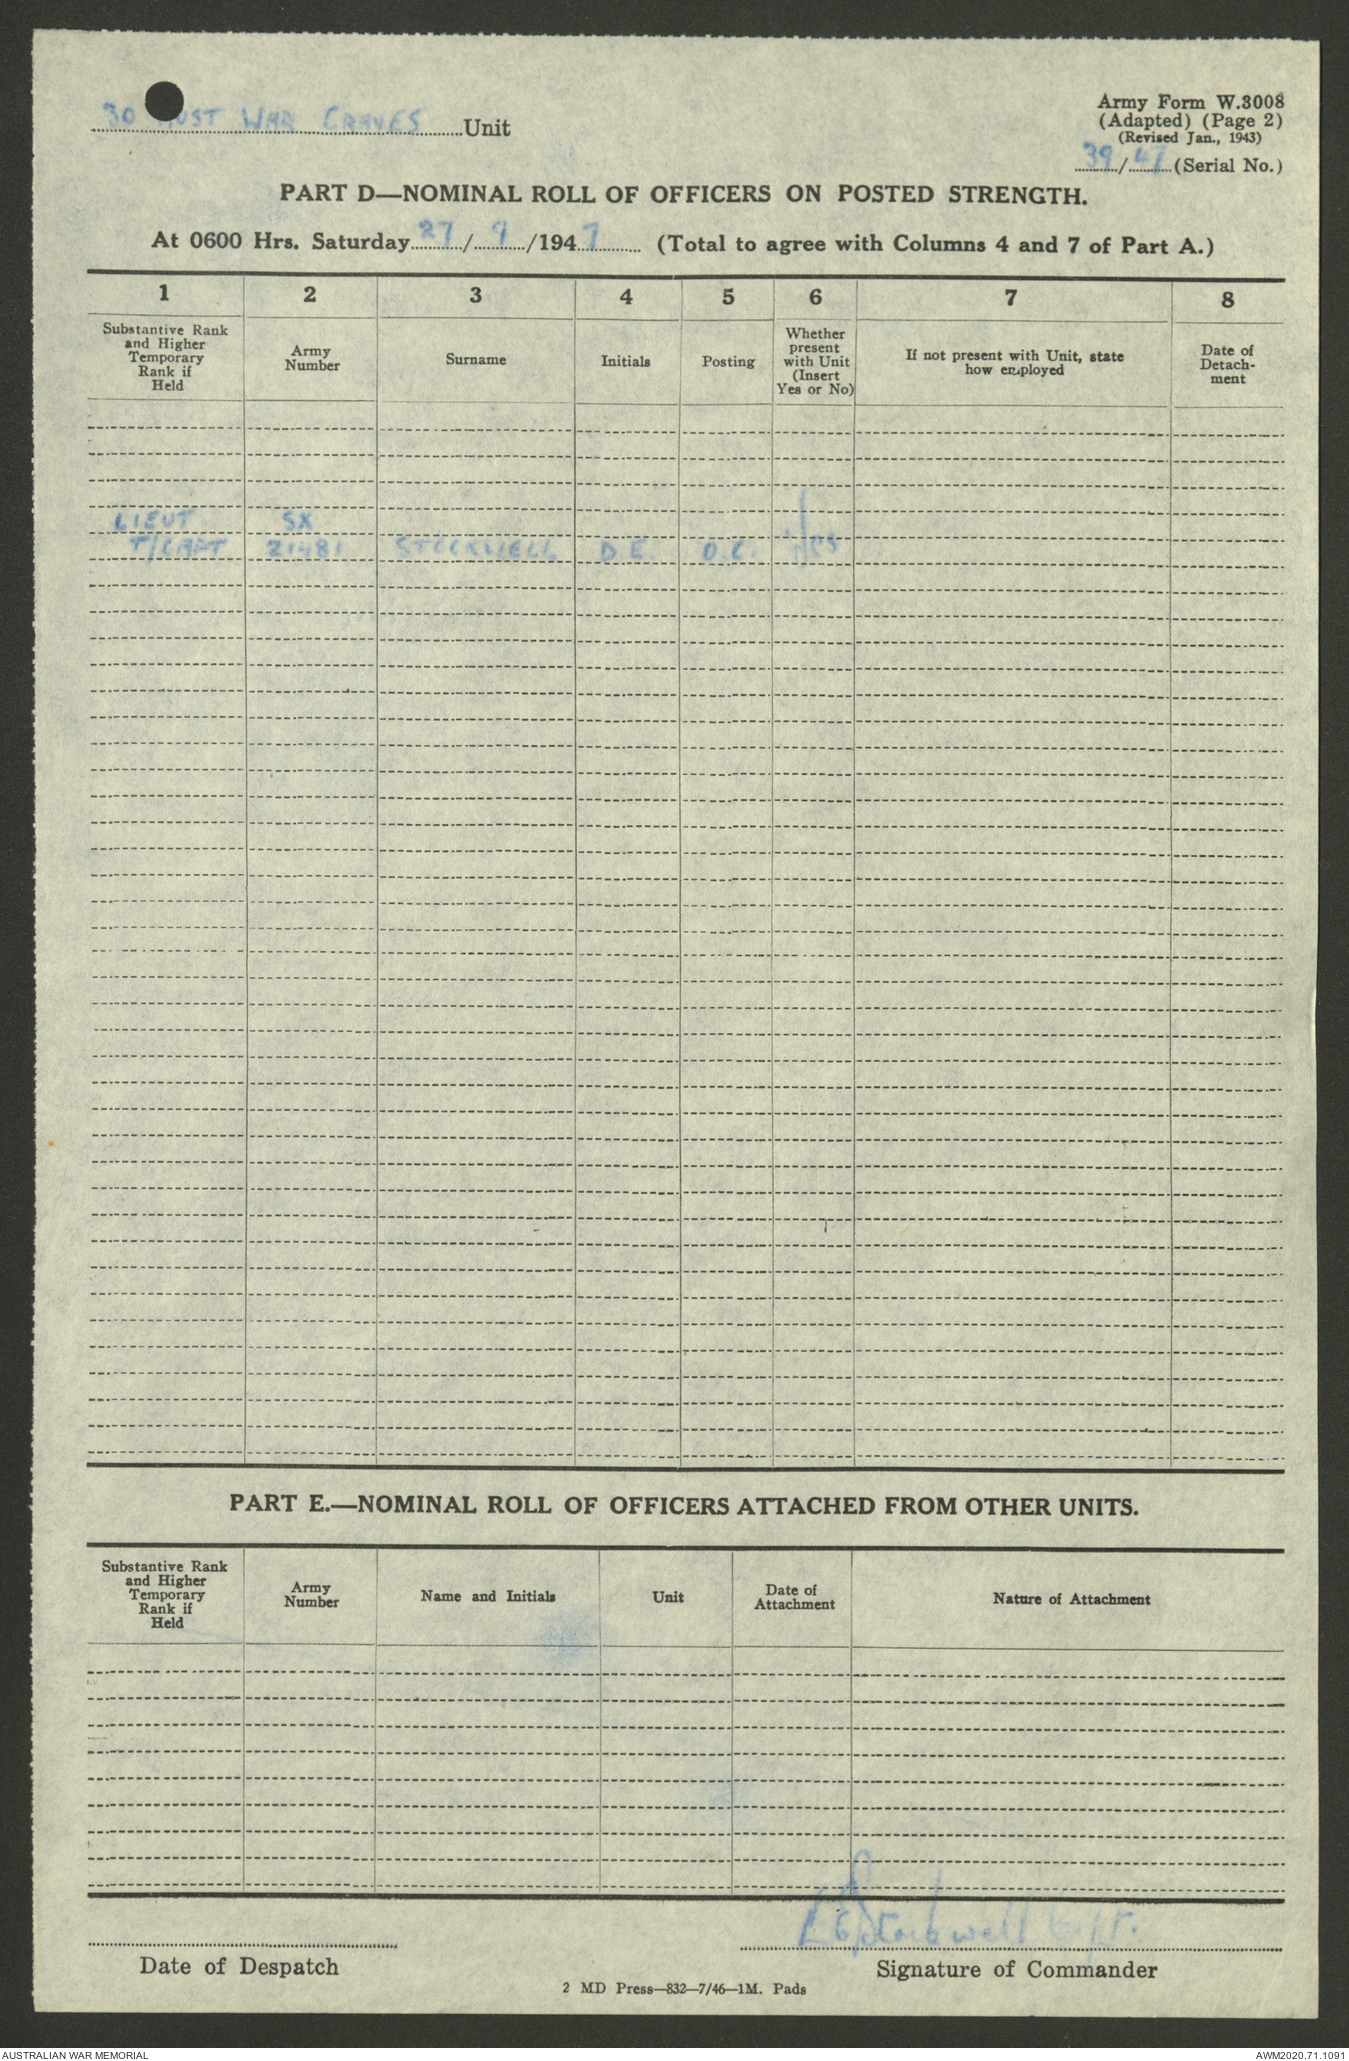 30 AUST WAR GRAVES Unit
Army Form W.3008
(Adapted) (Page 2)
(Revised Jan., 1943)
39/47 (Serial No.)
PART D—NOMINAL ROLL OF OFFICERS ON POSTED STRENGTH.
At 0600 Hrs. Saturday 27/9/1947 (Total to agree with Columns 4 and 7 of Part A.)
1 2 3 4 5 6 7 8
Substantive Rank and Higher Temporary Rank if Held
Army Number
Surname
Initials
Posting
Whether present with Unit (Insert Yes or No)
If not present with Unit, state how employed
Date of Detach-ment
LIEUT SX
T/CAPT 21481 STOCKWELL D.E. O.C. Yes
PART E.—NOMINAL ROLL OF OFFICERS ATTACHED FROM OTHER UNITS.
Substantive Rank and Higher Temporary Rank if Held
Army Number
Name and Initials
Unit
Date of Attachment
Nature of Attachment
Stockwell Capt.
Date of Despatch
Signature of Commander
2 MD Press—832—7/46—1M. Pads
AUSTRALIAN WAR MEMORIAL
AWM2020.71.1091